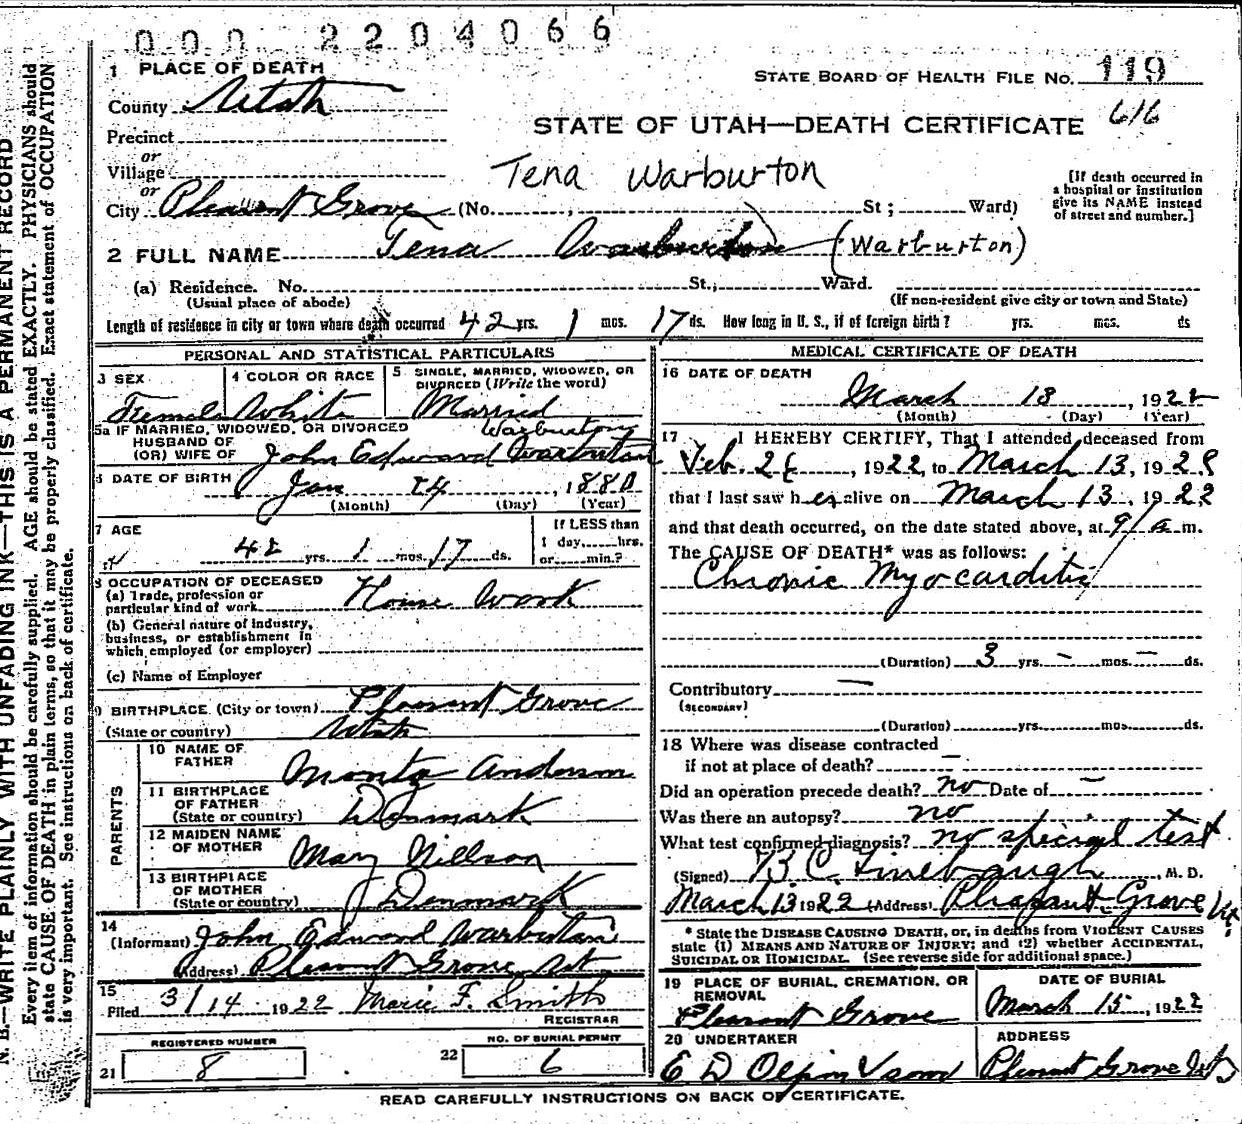 000 2204066
1 PLACE OF DEATH
STATE BOARD OF HEALTH FILE No. 119
County Utah
616
STATE OF UTAH—DEATH CERTIFICATE
Precinct
or
Village
Tena Warburton
[If death occurred in a hospital or institution give its NAME instead of street and number.]
or
City Pleasant Grove (No. , St; Ward)
2 FULL NAME Tena Warburton (Warburton)
(a) Residence. No. St., Ward.
(Usual place of abode) (If non-resident give city or town and State)
Length of residence in city or town where death occurred 42 yrs. 1 mos. 17 ds. How long in U. S., if of foreign birth? yrs. mos. ds
PERSONAL AND STATISTICAL PARTICULARS
3 SEX 4 COLOR OR RACE 5 SINGLE, MARRIED, WIDOWED, OR DIVORCED (Write the word)
Female White Married
5a IF MARRIED, WIDOWED, OR DIVORCED
Warburton
HUSBAND OF
(OR) WIFE OF John Edward Warburton
6 DATE OF BIRTH Jan 24, 1880
(Month) (Day) (Year)
7 AGE
If LESS than
42 yrs. 1 mos. 17 ds. 1 day, hrs.
or min.?
8 OCCUPATION OF DECEASED
(a) Trade, profession or particular kind of work House Work
(b) General nature of industry, business, or establishment in which employed (or employer)
(c) Name of Employer
9 BIRTHPLACE (City or town) Pleasant Grove
(State or country) Utah
PARENTS
10 NAME OF FATHER Anderson
11 BIRTHPLACE OF FATHER
(State or country) Denmark
12 MAIDEN NAME OF MOTHER Mary Nillson
13 BIRTHPLACE OF MOTHER
(State or country) Denmark
14
(Informant) John Edward Warburton
(Address) Pleasant Grove Ut
15
Filed 3/14 1922 Marie F. Smith
REGISTRAR
REGISTERED NUMBER
21 8
NO. OF BURIAL PERMIT
22 6
MEDICAL CERTIFICATE OF DEATH
16 DATE OF DEATH
March 13, 1922
(Month) (Day) (Year)
17 I HEREBY CERTIFY, That I attended deceased from
Feb. , 1922, to March 13, 192
that I last saw her alive on March 13, 1922
and that death occurred, on the date stated above, at 9 a m.
The CAUSE OF DEATH* was as follows:
Chronic Myocarditis
(Duration) 3 yrs. – mos. – ds.
Contributory —
(SECONDARY)
(Duration) yrs. mos. ds.
18 Where was disease contracted
if not at place of death? —
Did an operation precede death? no Date of —
Was there an autopsy? no
What test confirmed diagnosis? no special test
(Signed) B C Linebaugh, M. D.
March 13 1922 (Address) Pleasant Grove Ut.
* State the DISEASE CAUSING DEATH, or, in deaths from VIOLENT CAUSES
state (1) MEANS AND NATURE OF INJURY; and (2) whether ACCIDENTAL,
SUICIDAL OR HOMICIDAL. (See reverse side for additional space.)
19 PLACE OF BURIAL, CREMATION, OR REMOVAL
Pleasant Grove
DATE OF BURIAL
March 15, 1922
20 UNDERTAKER
E D Olpin & Sons
ADDRESS
Pleasant Grove Ut
READ CAREFULLY INSTRUCTIONS ON BACK OF CERTIFICATE.
N. B.—WRITE PLAINLY WITH UNFADING INK—THIS IS A PERMANENT RECORD
Every item of information should be carefully supplied. AGE should be stated EXACTLY. PHYSICIANS should
state CAUSE OF DEATH in plain terms, so that it may be properly classified. Exact statement of OCCUPATION
is very important. See instructions on back of certificate.